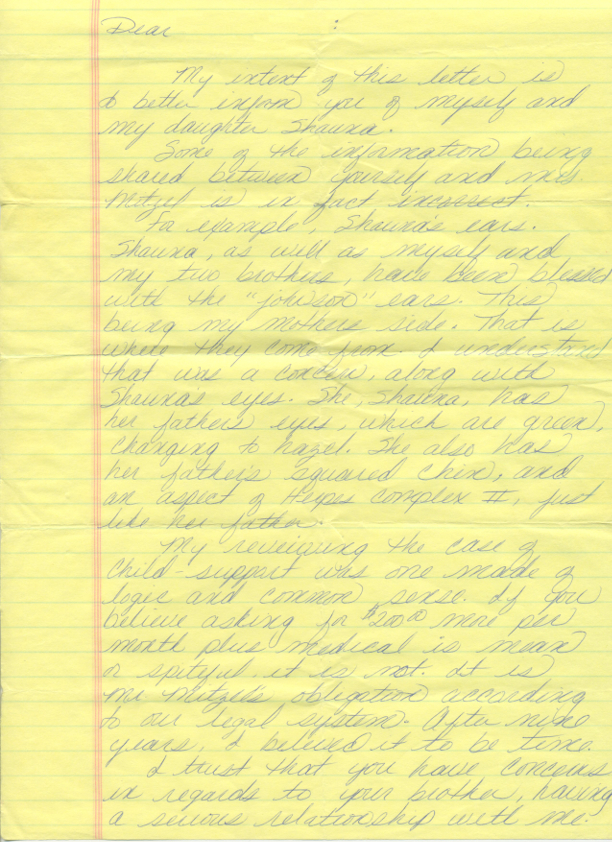 Dear :
My intent of this letter is
to better inform you of myself and
my daughter Shauna.
Some of the information being
shared between yourself and Mr.
Mitzel is in fact incorrect.
For example, Shauna's ears.
Shauna, as well as myself and
my two brothers, have been blessed
with the "johnson" ears. This
being my mothers side. That is
where they come from. I understand
that was a concern, along with
Shaunas eyes. She, Shauna, has
her father's eyes, which are green,
changing to hazel. She also has
her father's squared chin, and
an aspect of Herpes complex II, just
like her father.
My reveiwing the case of
child-support was one made of
logic and common sense. If you
believe asking for $200.00 more per
month plus medical is mean
or spiteful, it is not. It is
Mr Mitzel's obligation according
to our legal system. After nine
years, I believed it to be time.
I trust that you have concerns
in regards to your brother, having
a serious relationship with me.